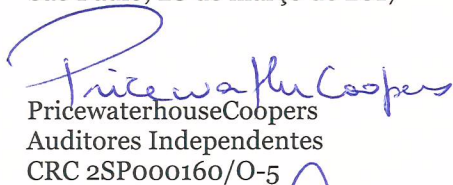 PricewaterhouseCoopers
PricewaterhouseCoopers
Auditores Independentes
CRC 2SP000160/O-5